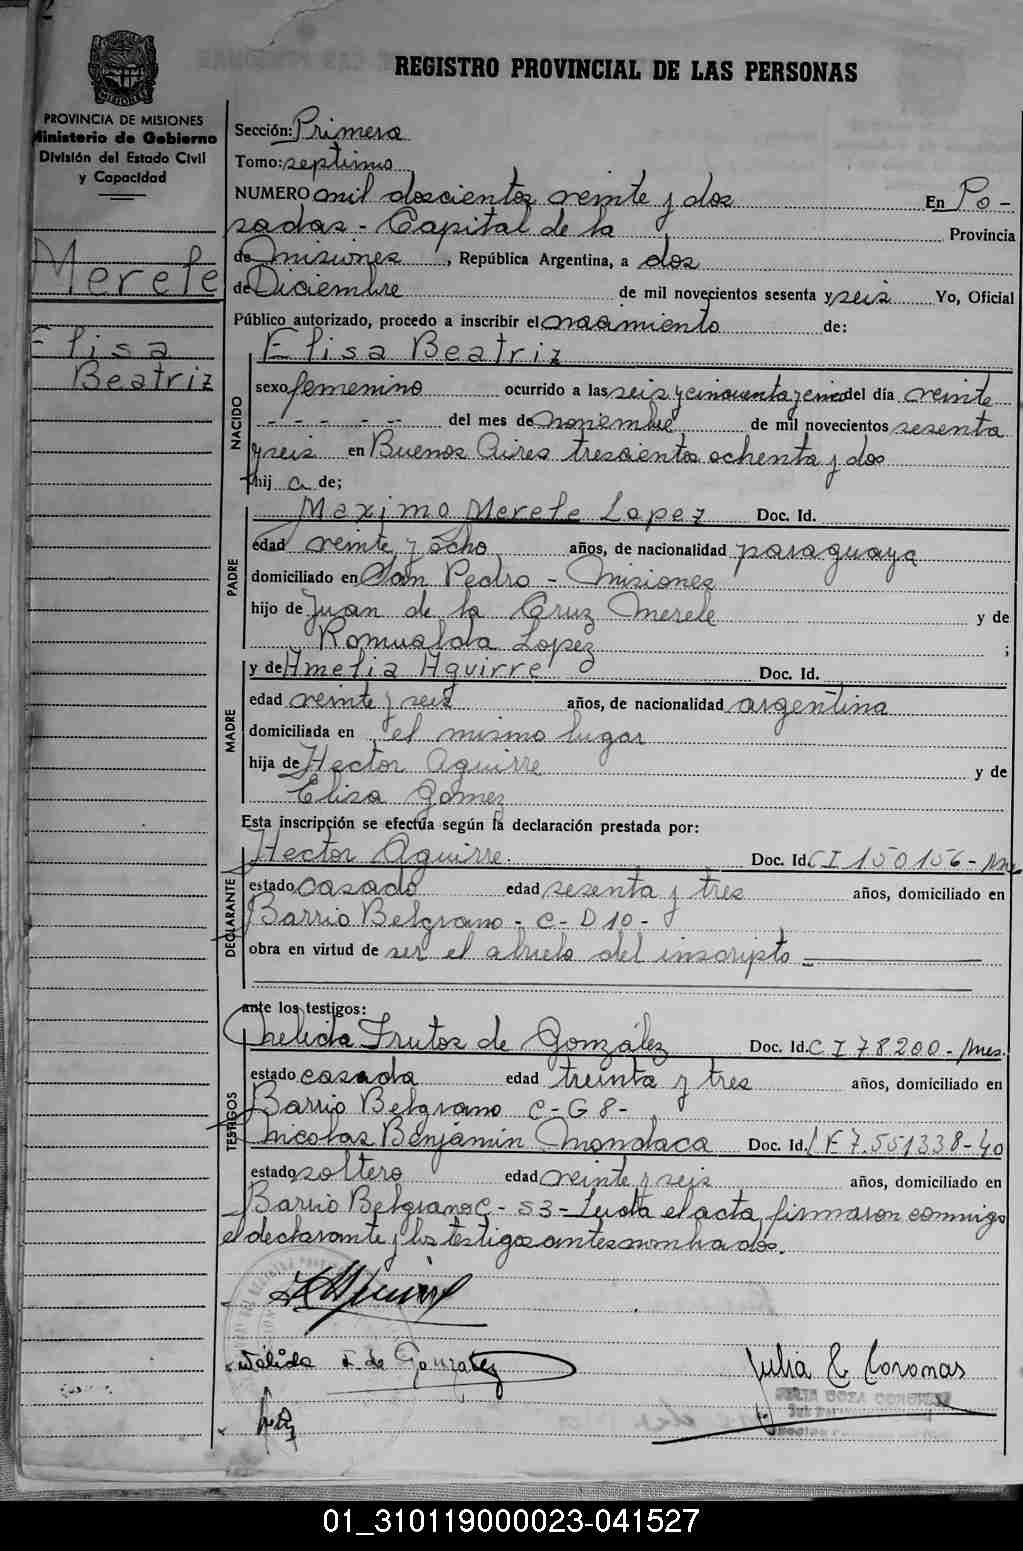 REGISTRO PROVINCIAL DE LAS PERSONAS
PROVINCIA DE MISIONES
Ministerio de Gobierno
División del Estado Civil
y Capacidad
Merele
Elisa
Beatriz
Sección: Primera
Tomo: septimo
NUMERO mil doscientos veinte y dos En Po-
sadas - Capital de la Provincia
de Misiones, República Argentina, a dos
de Diciembre de mil novecientos sesenta y seis Yo, Oficial
Público autorizado, procedo a inscribir el nacimiento de:
Elisa Beatriz
NACIDO
sexo femenino ocurrido a las seis y cincuenta y cinco del día veinte
- - - - -- del mes de noviembre de mil novecientos sesenta
y seis en Buenos Aires trescientos ochenta y dos
hij a de;
Maximo Merele Lopez Doc. Id.
PADRE
edad veinte y ocho años, de nacionalidad paraguaya
domiciliado en San Pedro - Misiones
hijo de Juan de la Cruz Merele y de
Romualda Lopez ;
y de Amelia Aguirre Doc. Id.
MADRE
edad veinte y seis años, de nacionalidad argentina
domiciliada en el mismo lugar
hija de Hector Aguirre y de
Elisa Gomez
Esta inscripción se efectúa según la declaración prestada por:
Hector Aguirre. Doc. Id. CI 150156 - Mnes
DECLARANTE
estado casado edad sesenta y tres años, domiciliado en
Barrio Belgrano - C - D 10 -
obra en virtud de ser el abuelo del inscripto
ante los testigos:
Frutos de González Doc. Id. CI 78200 - Mnes.
TESTIGOS
estado casada edad treinta y tres años, domiciliado en
Barrio Belgrano C - G 8 -
Nicolas Benjamin Mondaca Doc. Id. LE 7.551338-40
estado soltero edad veinte y seis años, domiciliado en
Barrio Belgrano C - S3 - Leida el acta, firmaron conmigo
el declarante y los testigos antes nombrados.
H Aguirre
F de Gonzalez
Julia C Coronas
01_310119000023-041527